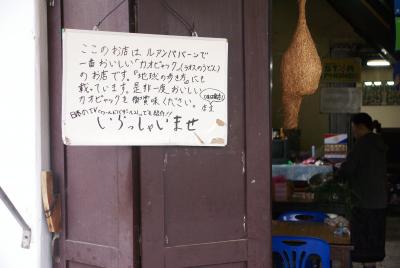 このお店は、ルアンパバーンで
一番おいしい「カオピャック」(ラオスのうどん)
のお店です。『地球の歩き方』にも
載っています。是非一度、おいしい
カオピャックを御賞味ください。
いらっしゃいませ